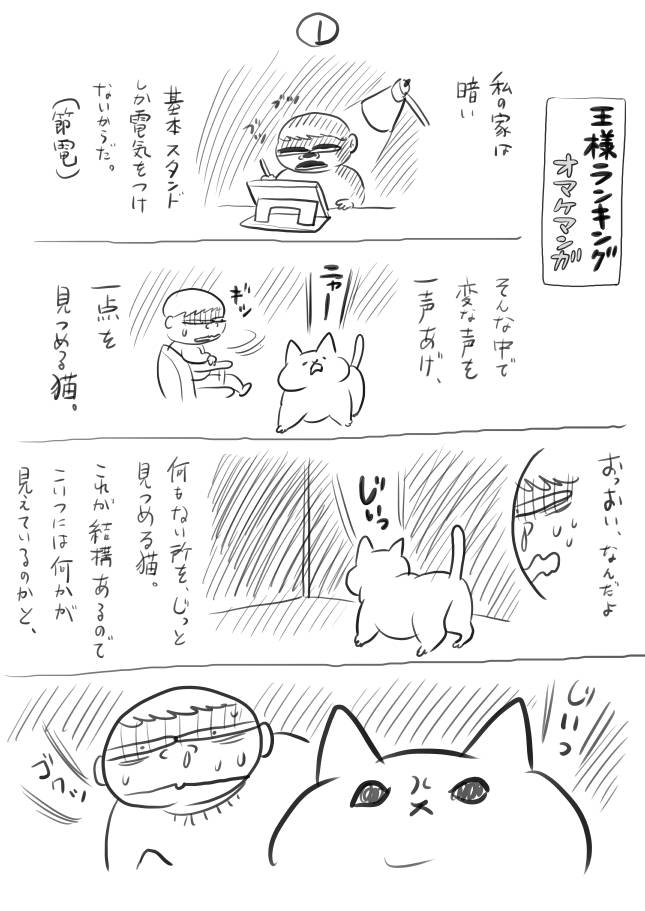 ①
王様ランキング
オマケマンガ
私の家は
暗い
ガガッ
基本スタンド
しか電気をつけ
ないからだ。
(節電)
そんな中で
変な声を
一声あげ、
ニャー
ギッ
一点を
見つめる猫。
おっおい、なんだよ
じぃっ
何もない所を、じっと
見つめる猫。
これが結構あるので
こいつには何かが
見えているのかと、
じいっ